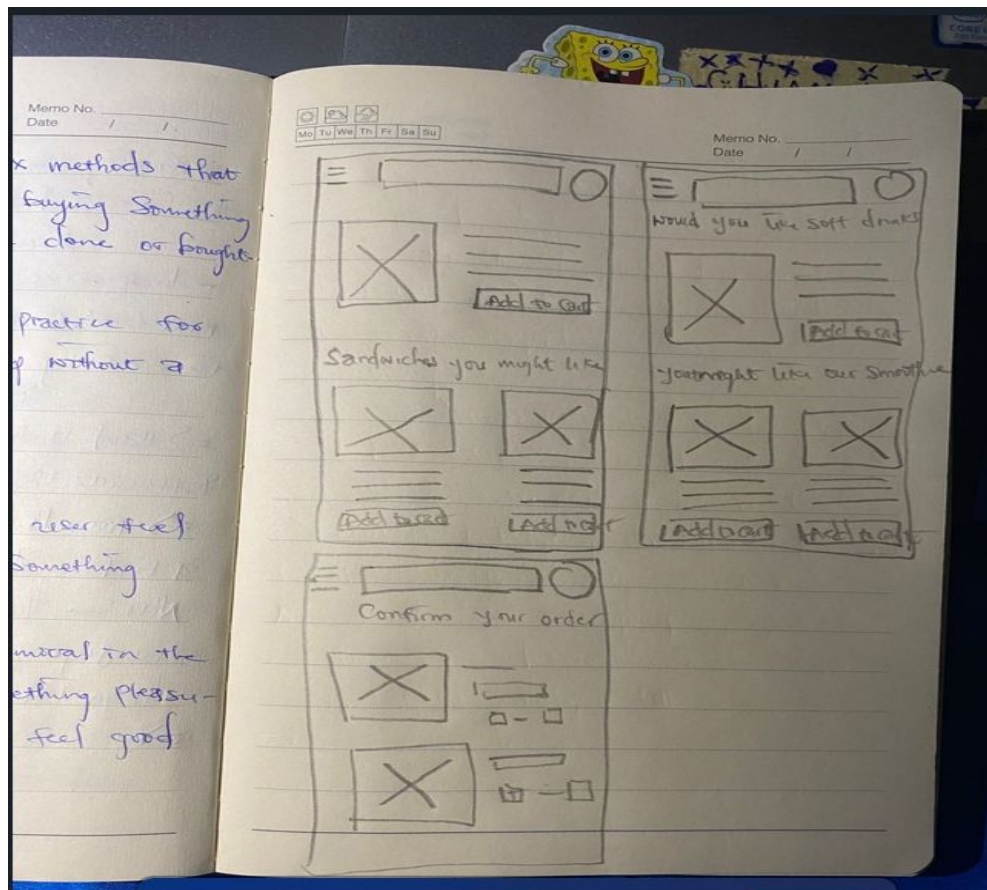 Memo No.
Date / /.
methods that
buying Something
done or bought
practice for
without a
user feel
Something
in the
ething pleasu-
feel good
Mo Tu We Th Fr Sa Su
Memo No.
Date / /
Add to Cart
Sandwiches you might like
Add to cart
Add to cart
would you like soft drinks
Add to cart
you might like our Smoothie
Add to cart
Add to cart
Confirm your order